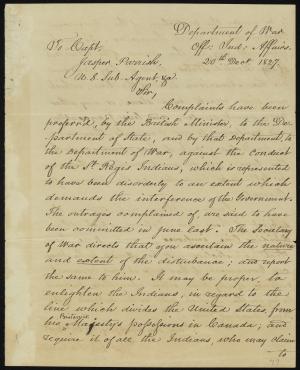 Department of War
Off: Ind: Affairs.
To Capt.
20th Decr 1827.
Jasper Parrish,
U. S. Sub. Agent, &c
Sir,
Complaints have been
preferr'd, by the British Minister, to the De-
partment of State, and by that Department, to
the Department of War, against the conduct
of the St. Regis Indians, which is represented
to have been disorderly to an extent which
demands the interference of the Government.
The outrages complained of, are said to have
been committed in june last. The Secretary
of War directs that you ascertain the nature
and extent of the disturbance; and report
the same to him. It may be proper, to
enlighten the Indians, in regard to the
line which divides the United States, from
his Britannic Majesty's possessions in Canada; and
require it of all the Indians, who may claim
to